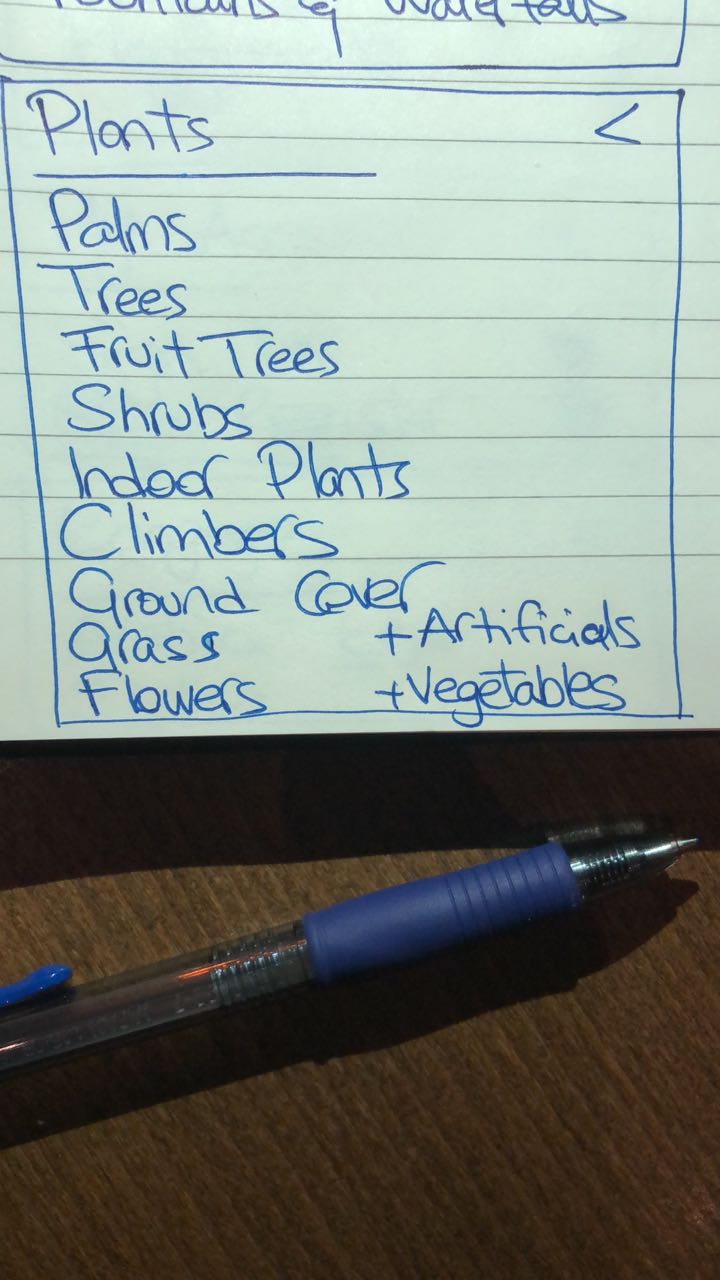 Fountains & Waterfalls
Plants <
Palms
Trees
Fruit Trees
Shrubs
Indoor Plants
Climbers
Ground Cover
Grass +Artificials
Flowers +Vegetables